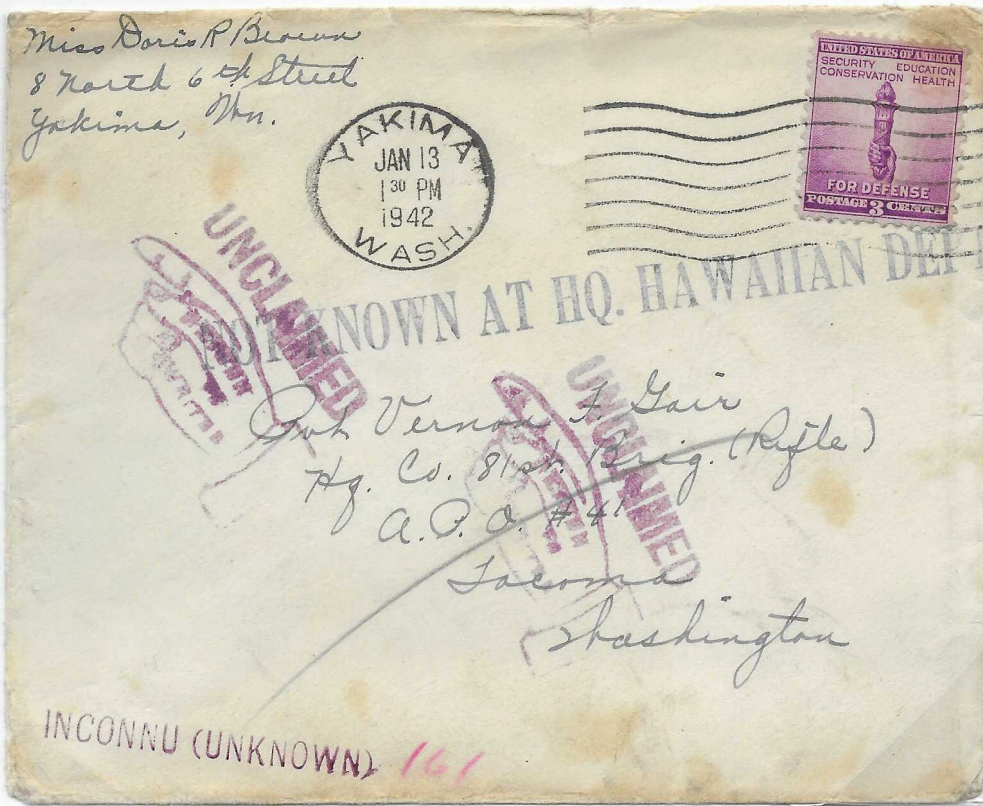 Miss Doris R Brown
8 North 6th Street
Yakima, Wn.
YAKIMA
JAN 13
1 30 PM
1942
WASH.
UNITED STATES OF AMERICA
SECURITY EDUCATION
CONSERVATION HEALTH
FOR DEFENSE
POSTAGE 3 CENTS
UNCLAIMED
NOT KNOWN AT HQ. HAWAIIAN DEPT
UNCLAIMED
Pvt. Vernon F. Gair
Hq. Co. 81st. Brig. (Rifle)
A.P.O. #41
Tacoma
Washington
INCONNU (UNKNOWN) 161